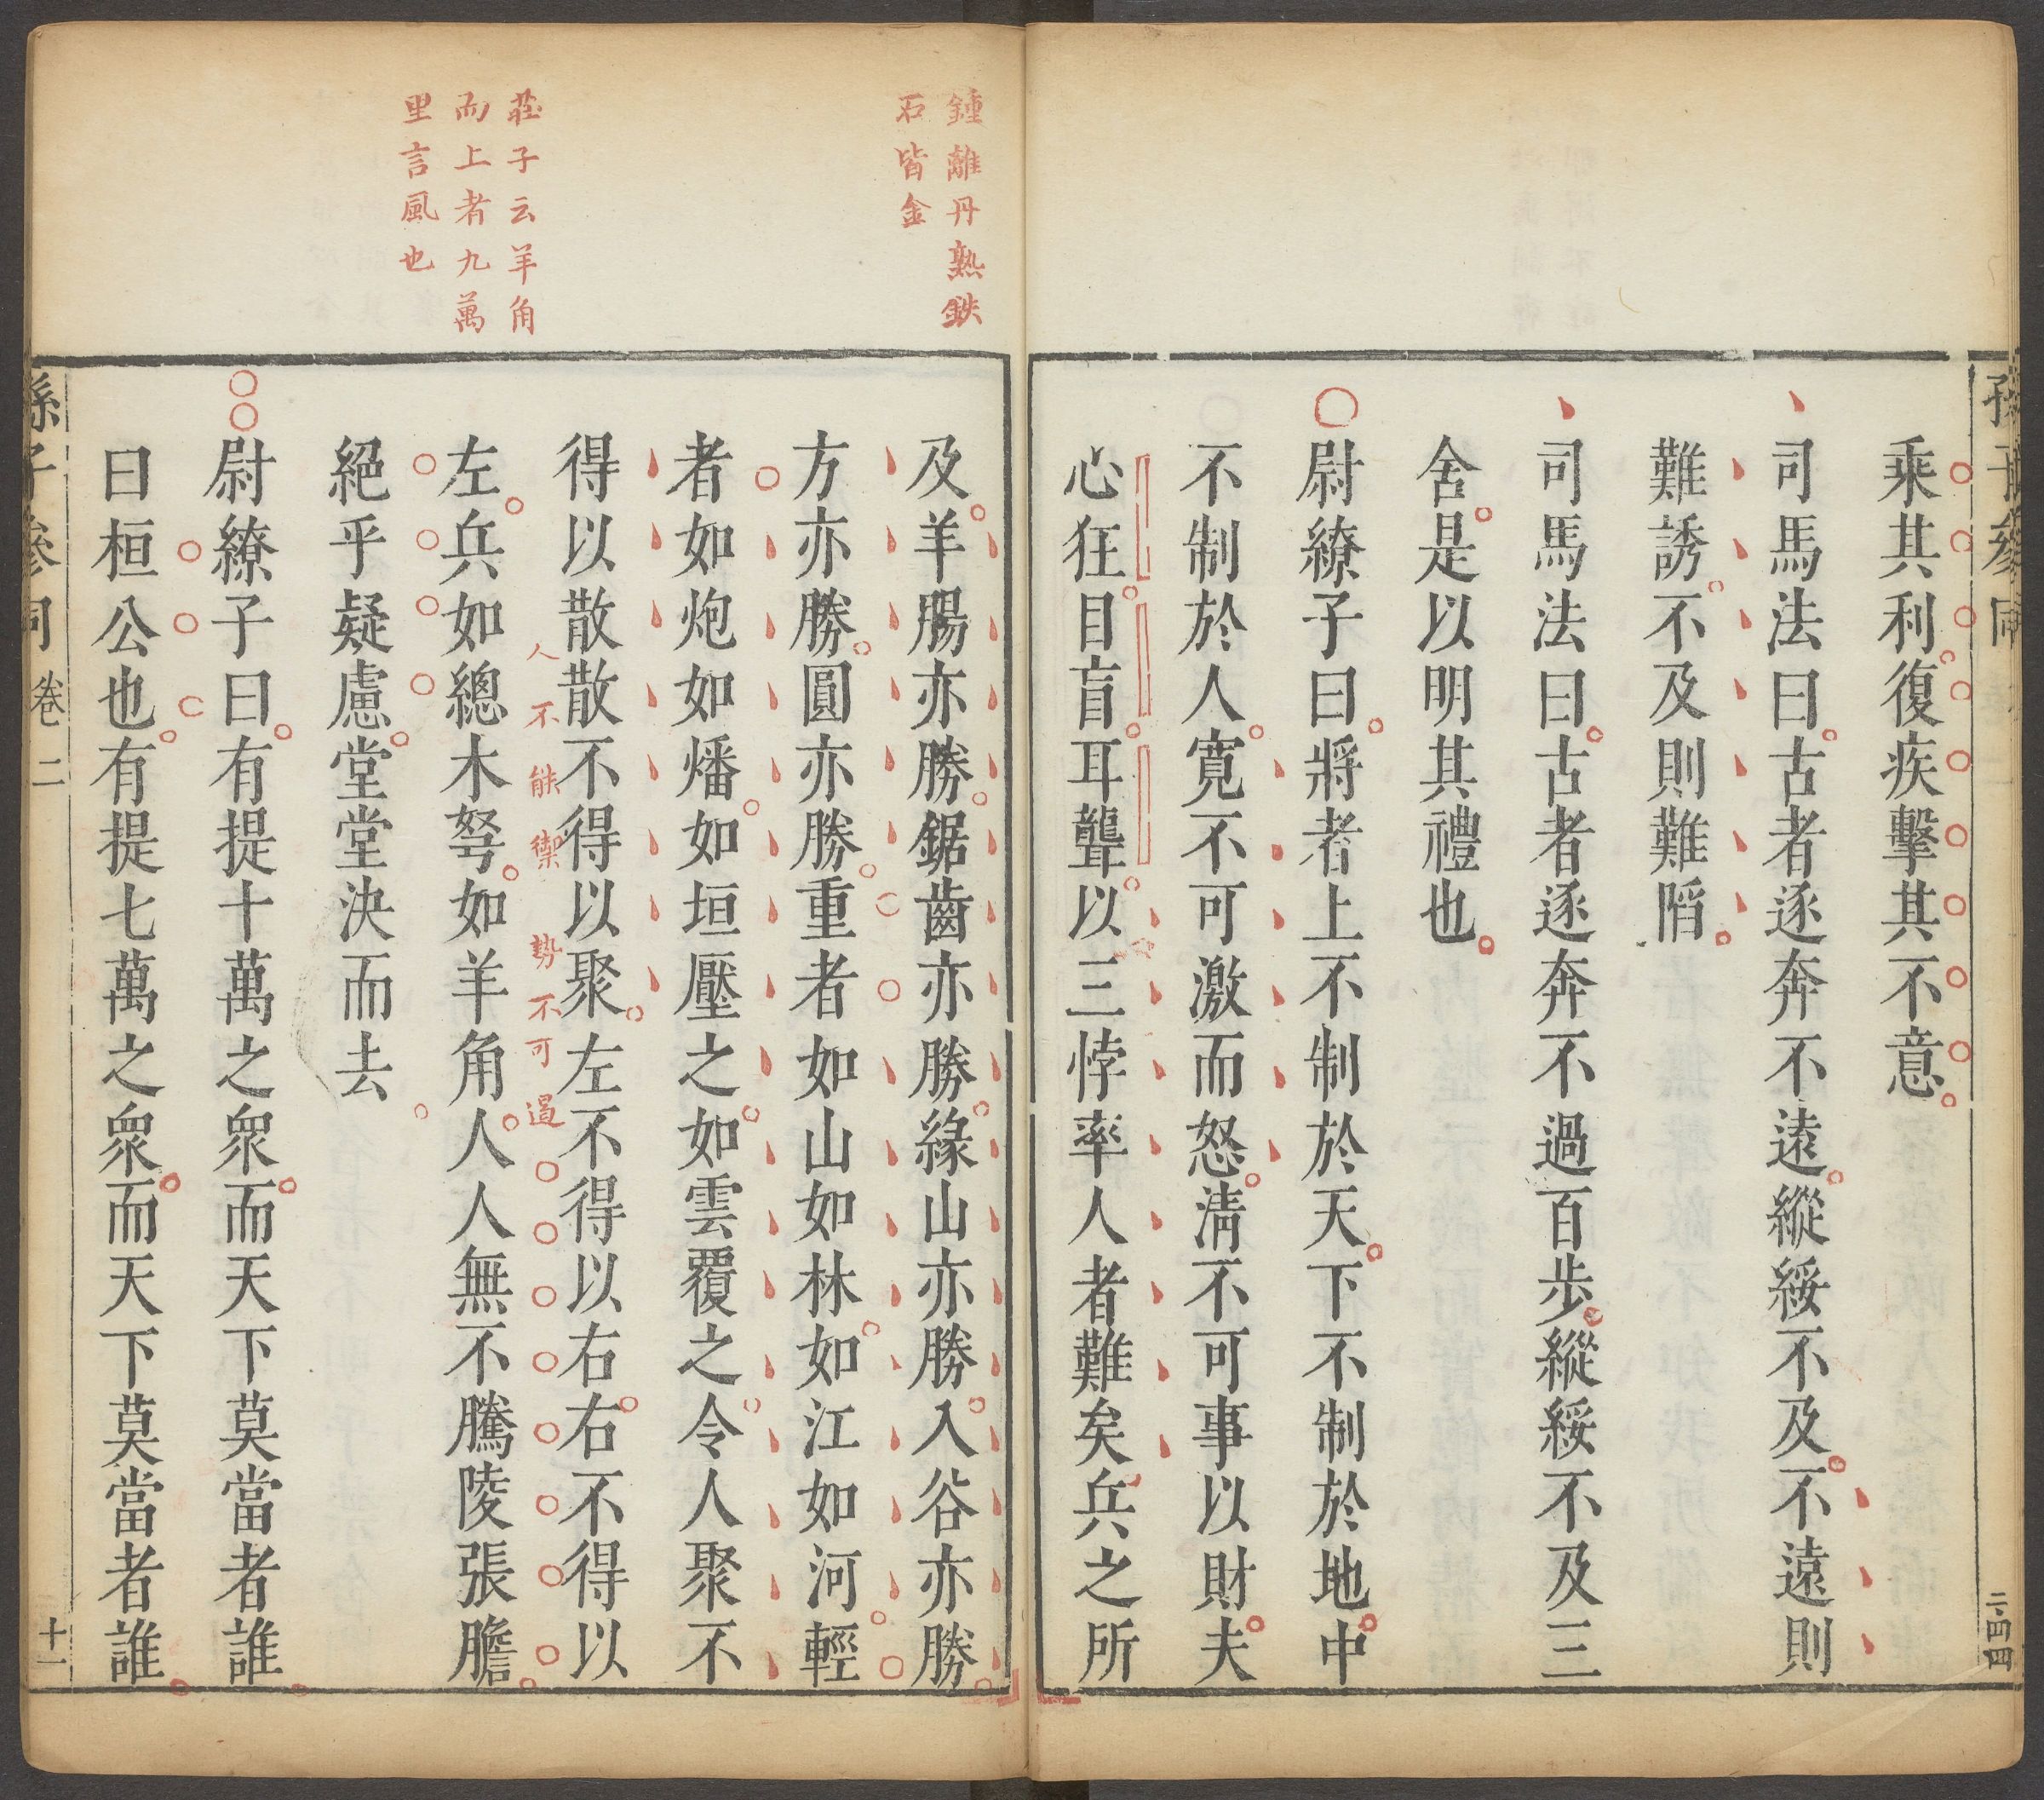 乘其利復疾擊其不意
司馬法曰古者逐奔不遠縱綏不及不遠則
難誘不及則難陷
司馬法曰古者逐奔不過百步縱綏不及三
舍是以明其禮也
尉繚子曰將者上不制於天下不制於地中
不制於人寬不可激而怒淸不可事以財夫
心狂目盲耳聾以三悖率人者難矣兵之所
鍾離丹熟鉄
石皆金
及羊腸亦勝鋸齒亦勝緣山亦勝入谷亦勝
方亦勝圓亦勝重者如山如林如江如河輕
者如炮如燔如垣壓之如雲覆之令人聚不
得以散散不得以聚左不得以右右不得以
人不能禦勢不可遏
莊子云羊角
而上者九萬
里言風也
左兵如總木弩如羊角人人無不騰陵張膽
絕乎疑慮堂堂決而去
尉繚子曰有提十萬之衆而天下莫當者誰
曰桓公也有提七萬之衆而天下莫當者誰
孫子參同 卷二 十一